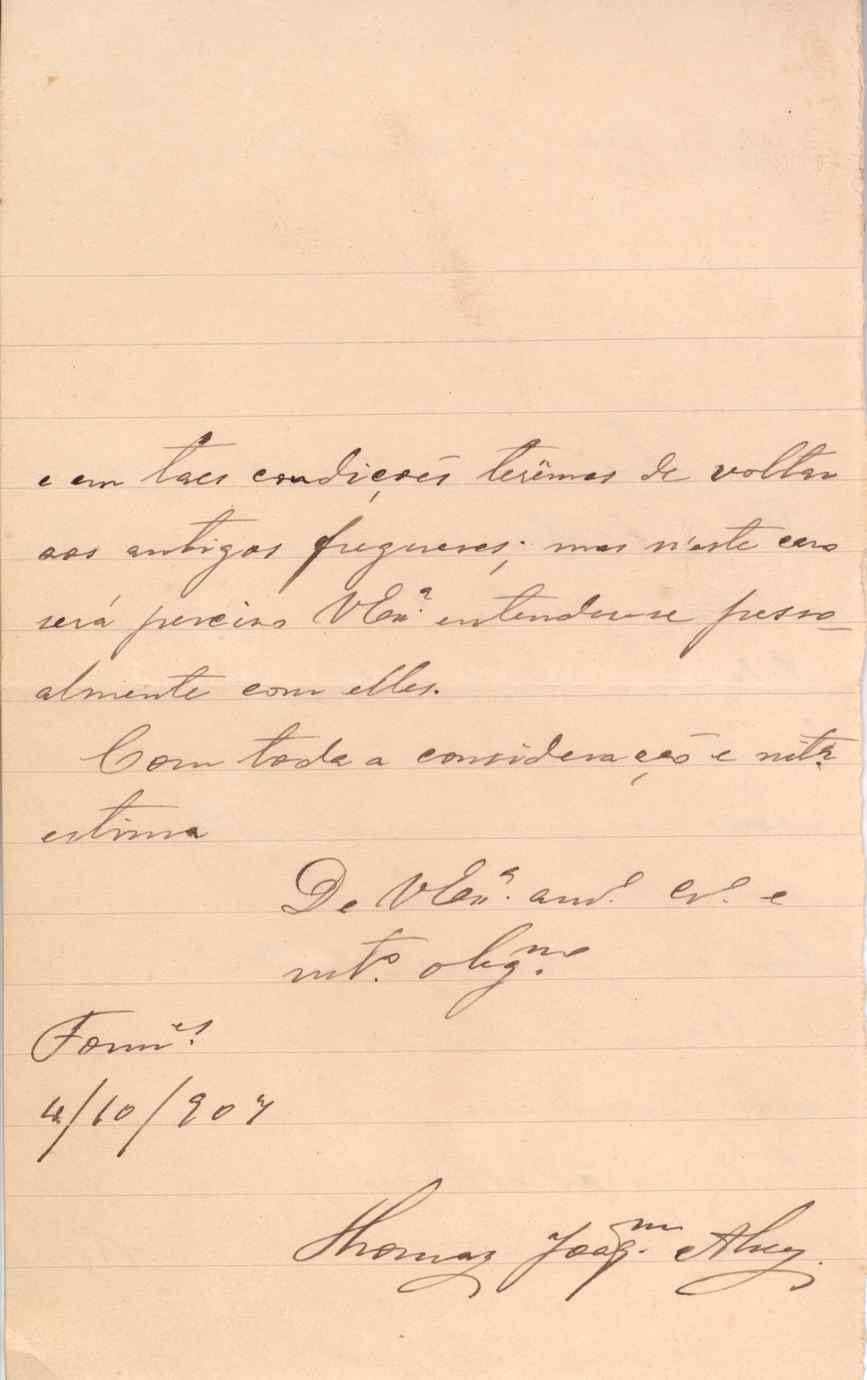 e em taes condições terêmos de voltar
aos antigos freguezes; mas n'este caso
será preciso V Exª. entender-se pesso-
almente com elles.
Com toda a consideração e mtª.
estima
De V Exª. amº. crº. e
mtº. obgmo.
4/10/907
Thomaz Joaqm. Alves.